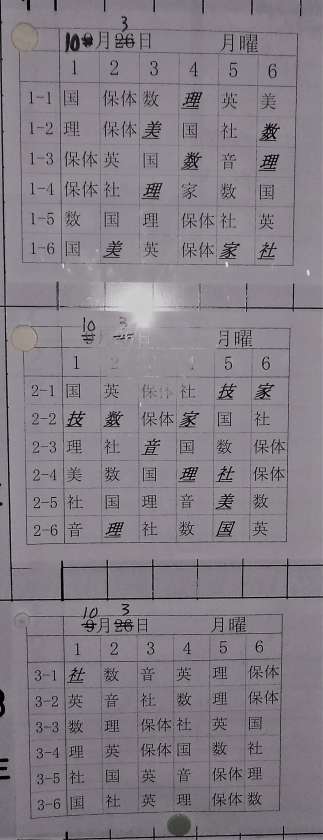 10 9月 26 3日 月曜
1 2 3 4 5 6
1-1 国 保体 数 理 英 美
1-2 理 保体 美 国 社 数
1-3 保体 英 国 数 音 理
1-4 保体 社 理 家 数 国
1-5 数 国 理 保体 社 英
1-6 国 美 英 保体 家 社
10 3 月曜
1 2 5 6
2-1 国 英 保体 社 技 家
2-2 技 数 保体 家 国 社
2-3 理 社 音 国 数 保体
2-4 美 数 国 理 社 保体
2-5 社 国 理 音 美 数
2-6 音 理 社 数 国 英
10 3
9月26日 月曜
1 2 3 4 5 6
3-1 社 数 音 英 理 保体
3-2 英 音 社 数 理 保体
3-3 数 理 保体 社 英 国
3-4 理 英 保体 国 数 社
3-5 社 国 英 音 保体 理
3-6 国 社 英 理 保体 数